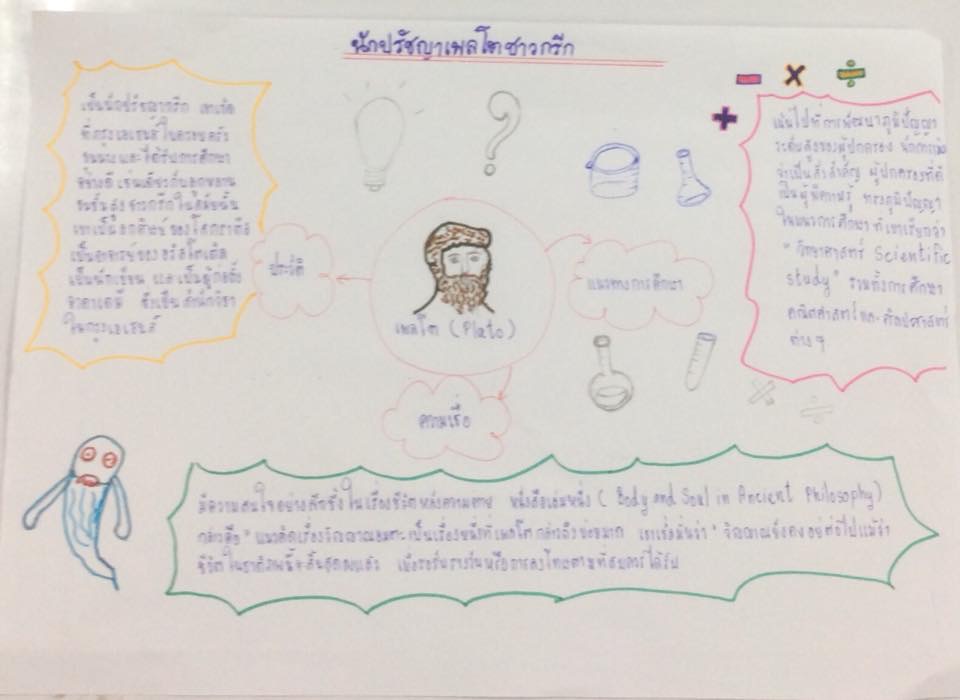 นักปรัชญาเพลโตชาวกรีก
เป็นนักปรัชญากรีก เขาเกิด
ที่กรุงเอเธนส์ ในครอบครัว
ขุนนาง และได้รับการศึกษา
อย่างดี เช่นเดียวกับลูกหลาน
ชนชั้นสูง ชาวกรีกในสมัยนั้น
เขาเป็นลูกศิษย์ ของโสคราตีส
เป็นอาจารย์ของ อริสโตเติล
เป็นนักเขียน และ เป็นผู้ก่อตั้ง
อาคาเดมี ซึ่งเป็นสำนักวิชา
ในกรุงเอเธนส์
ประวัติ
เพลโต (Plato)
แนวทางการศึกษา
เน้นไปที่การพัฒนาภูมิปัญญา
ระดับสูงของผู้ปกครอง
จำเป็นสิ่งสำคัญ ผู้ปกครองที่ดี
เป็นผู้มีความรู้ ทรงภูมิปัญญา
ในแนวการศึกษา ที่เขาเรียกว่า
" วิทยาศาสตร์ Scientific
study" รวมทั้งการศึกษา
คณิตศาสตร์และ ศิลปศาสตร์
ต่างๆ
ความเชื่อ
มีความสนใจอย่างลึกซึ้ง ในเรื่องชีวิต หลังความตาย หนังสือเล่มหนึ่ง ( Body and Soul in Ancient Philosophy)
กล่าวคือ " แนวคิดเรื่องวิญญาณอมตะ เป็นเรื่องหนึ่งที่ เพลโต กล่าวถึง บ่อยมาก เขาเชื่อมั่นว่า " วิญญาณยังคงอยู่ต่อไปแม้ว่า
ชีวิต ในชาตินี้จะสิ้นสุดลงแล้ว เพื่อรอรับรางวัลหรือการลงโทษตามที่สมควรได้รับ